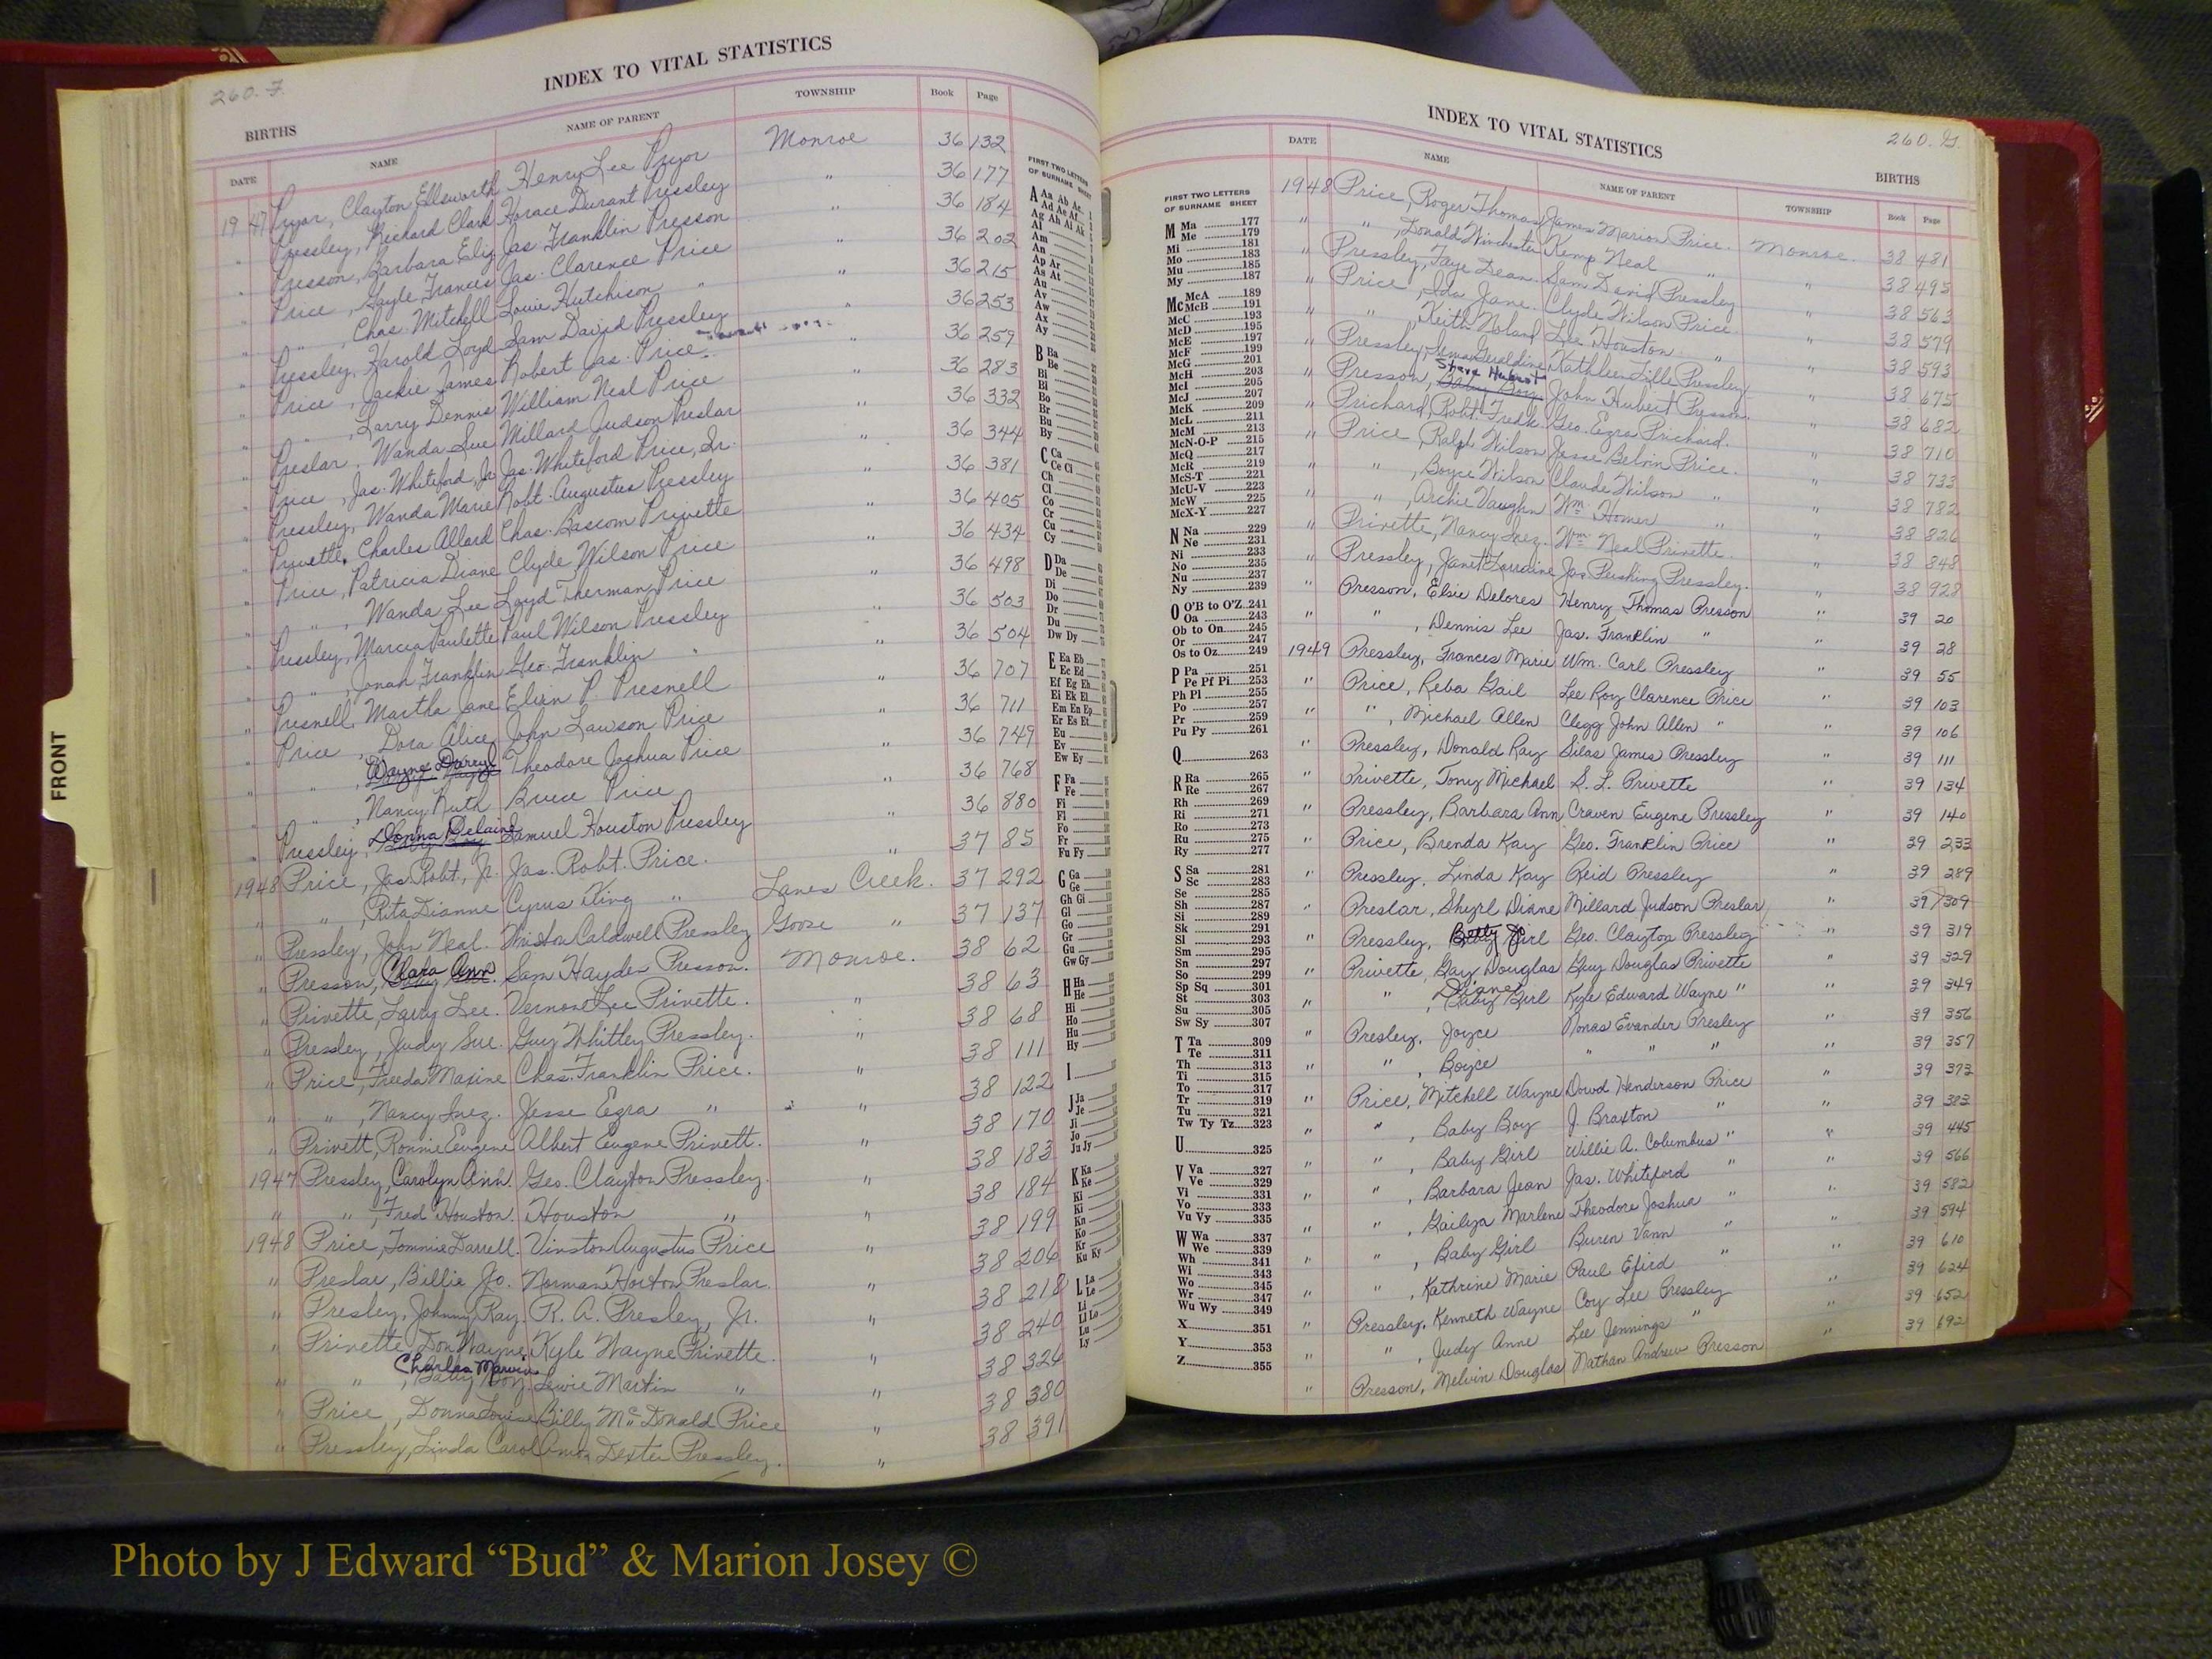 260. F.
INDEX TO VITAL STATISTICS
BIRTHS
DATE NAME NAME OF PARENT TOWNSHIP Book Page
1947 Pryor, Clayton Ellsworth Henry Lee Pryor Monroe 36 132
" Pressley, Richard Clark Horace Durant Pressley " 36 177
" Presson, Barbara Eliz Jas. Franklin Presson " 36 184
" Price, Gayle Frances Jas. Clarence Price " 36 202
" " , Chas. Mitchell Louie Hutchison " " 36 215
" Pressley, Harold Loyd Sam David Pressley " 36 253
" Price, Jackie James Robert Jas. Price " 36 259
" " , Larry Dennis William Neal Price " 36 283
" Preslar, Wanda Sue Millard Judson Preslar " 36 332
" Price, Jas. Whiteford, Jr. Jas. Whiteford Price, Sr. " 36 344
" Pressley, Wanda Marie Robt. Augustus Pressley " 36 381
" Privette, Charles Allard Chas. Bascom Privette " 36 405
" Price, Patricia Diane Clyde Wilson Price " 36 434
" " , Wanda Lee Loyd Therman Price " 36 498
" Pressley, Marcia Paulette Paul Wilson Pressley " 36 503
" " , Jonah Franklin Geo. Franklin " " 36 504
" Presnell, Martha Jane Elvin P. Presnell " 36 707
" Price, Dora Alice John Lawson Price " 36 711
" " , Wayne Darryl Theodore Joshua Price " 36 749
" " , Nancy Ruth Bruce Price " 36 768
" Pressley, Donna Delaine Samuel Houston Pressley " 36 880
1948 Price, Jas. Robt., Jr. Jas. Robt. Price. " 37 85
" " , Rita Dianne Cyrus King " Lanes Creek. 37 292
" Pressley, John Neal. Winston Caldwell Pressley Goose " 37 137
" Presson, Clara Ann Sam Hayden Presson. Monroe. 38 62
" Privette, Larry Lee. Vernon Lee Privette. " 38 63
" Pressley, Judy Sue. Guy Whitley Pressley. " 38 68
" Price, Freeda Maxine Chas. Franklin Price. " 38 111
" " , Nancy Inez. Jesse Ezra " " 38 122
" Privett, Ronnie Eugene Albert Eugene Privett. " 38 170
1947 Pressley, Carolyn Ann. Geo. Clayton Pressley. " 38 183
" " , Fred Houston. Houston " " 38 184
1948 Price, Tommie Darrell. Vinston Augustus Price " 38 199
" Preslar, Billie Jo. Norman Horton Preslar. " 38 206
" Presley, Johnny Ray. R. A. Presley, Jr. " 38 218
" Privette, Don Wayne Kyle Wayne Privette. " 38 240
" " , Charles Marvin Baby Boy. Lewie Martin " " 38 326
" Price, Donna Louise Billy McDonald Price " 38 380
" Pressley, Linda Carol Amos Dexter Pressley. " 38 391
FIRST TWO LETTERS
OF SURNAME SHEET
A Aa Ab Ac
Ad Ae Af
Ag Ah Ai Ak
Al
Am
An
Ap Ar
As At
Au
Av
Aw
Ax
Ay
B Ba
Be
Bi
Bl
Bo
Br
Bu
By
C Ca
Ce Ci
Ch
Cl
Co
Cr
Cu
Cy
D Da
De
Di
Do
Dr
Du
Dw Dy
E Ea Eb
Ec Ed
Ef Eg Eh
Ei Ek El
Em En Ep
Er Es Et
Eu
Ev
Ew Ey
F Fa
Fe
Fi
Fl
Fo
Fr
Fu Fy
G Ga
Ge
Gh Gi
Gl
Go
Gr
Gu
Gw Gy
H Ha
He
Hi
Ho
Hu
Hy
I
J Ja
Je
Ji
Jo
Ju Jy
K Ka
Ke
Ki
Kl
Kn
Ko
Kr
Ku Ky
L La
Le
Li
Ll Lo
Lu
Ly
FRONT
INDEX TO VITAL STATISTICS
260. G.
BIRTHS
DATE NAME NAME OF PARENT TOWNSHIP Book Page
FIRST TWO LETTERS
OF SURNAME SHEET
M Ma 177
Me 179
Mi 181
Mo 183
Mu 185
My 187
Mc McA 189
McB 191
McC 193
McD 195
McE 197
McF 199
McG 201
McH 203
McI 205
McJ 207
McK 209
McL 211
McM 213
McN-O-P 215
McQ 217
McR 219
McS-T 221
McU-V 223
McW 225
McX-Y 227
N Na 229
Ne 231
Ni 233
No 235
Nu 237
Ny 239
O O'B to O'Z 241
Oa 243
Ob to On 245
Or 247
Os to Oz 249
P Pa 251
Pe Pf Pi 253
Ph Pl 255
Po 257
Pr 259
Pu Py 261
Q 263
R Ra 265
Re 267
Rh 269
Ri 271
Ro 273
Ru 275
Ry 277
S Sa 281
Sc 283
Se 285
Sh 287
Si 289
Sk 291
Sl 293
Sm 295
Sn 297
So 299
Sp Sq 301
St 303
Su 305
Sw Sy 307
T Ta 309
Te 311
Th 313
Ti 315
To 317
Tr 319
Tu 321
Tw Ty Tz 323
U 325
V Va 327
Ve 329
Vi 331
Vo 333
Vu Vy 335
W Wa 337
We 339
Wh 341
Wi 343
Wo 345
Wr 347
Wu Wy 349
X 351
Y 353
Z 355
1948 Price, Roger Thomas James Marion Price. Monroe. 38 481
" " , Donald Winchester Kemp Neal " " 38 495
" Pressley, Faye Dean. Sam David Pressley " 38 563
" Price, Ida Jane. Clyde Wilson Price. " 38 579
" " , Keith Noland Lee Houston " " 38 593
" Pressley, Geraldine Kathleen Pressley " 38 675
" Presson, Steve Hubert Baby Boy John Hubert Presson. " 38 682
" Prichard, Robt. Fredk. Geo. Ezra Prichard. " 38 710
" Price, Ralph Wilson Jesse Belvin Price. " 38 733
" " , Boyce Wilson Claude Wilson " " 38 782
" " , Archie Vaughn Wm. Homer " " 38 826
" Privette, Nancy Inez. Wm. Neal Privette. " 38 848
" Pressley, Janet Lorraine Jas. Pershing Pressley. " 38 928
" Presson, Elsie Delores Henry Thomas Presson " 39 20
" " , Dennis Lee Jas. Franklin " " 39 28
1949 Pressley, Frances Marie Wm. Carl Pressley " 39 55
" Price, Reba Gail Lee Roy Clarence Price " 39 103
" " , Michael Allen Clegg John Allen " " 39 106
" Pressley, Donald Ray Silas James Pressley " 39 111
" Privette, Tony Michael S. L. Privette " 39 134
" Pressley, Barbara Ann Craven Eugene Pressley " 39 140
" Price, Brenda Kay Geo. Franklin Price " 39 233
" Pressley, Linda Kay Reid Pressley " 39 289
" Preslar, Sheyrl Diane Millard Judson Preslar " 39 309
" Pressley, Betty Jo Girl Geo. Clayton Pressley " 39 319
" Privette, Gay Douglas Guy Douglas Privette " 39 329
" " , Dianne Baby Girl Kyle Edward Wayne " " 39 349
" Presley, Joyce Nonas Evander Presley " 39 356
" " , Boyce " " " " 39 357
" Price, Mitchell Wayne Dowd Henderson Price " 39 373
" " , Baby Boy J. Braxton " " 39 383
" " , Baby Girl Willie A. Columbus " " 39 445
" " , Barbara Jean Jas. Whiteford " " 39 566
" " , Gailya Marlene Theodore Joshua " " 39 582
" " , Baby Girl Buren Vann " " 39 594
" " , Kathrine Marie Paul Efird " " 39 610
" Pressley, Kenneth Wayne Coy Lee Pressley " 39 624
" " , Judy Anne Lee Jennings " " 39 652
" Presson, Melvin Douglas Nathan Andrew Presson " 39 692
Photo by J Edward “Bud” & Marion Josey ©